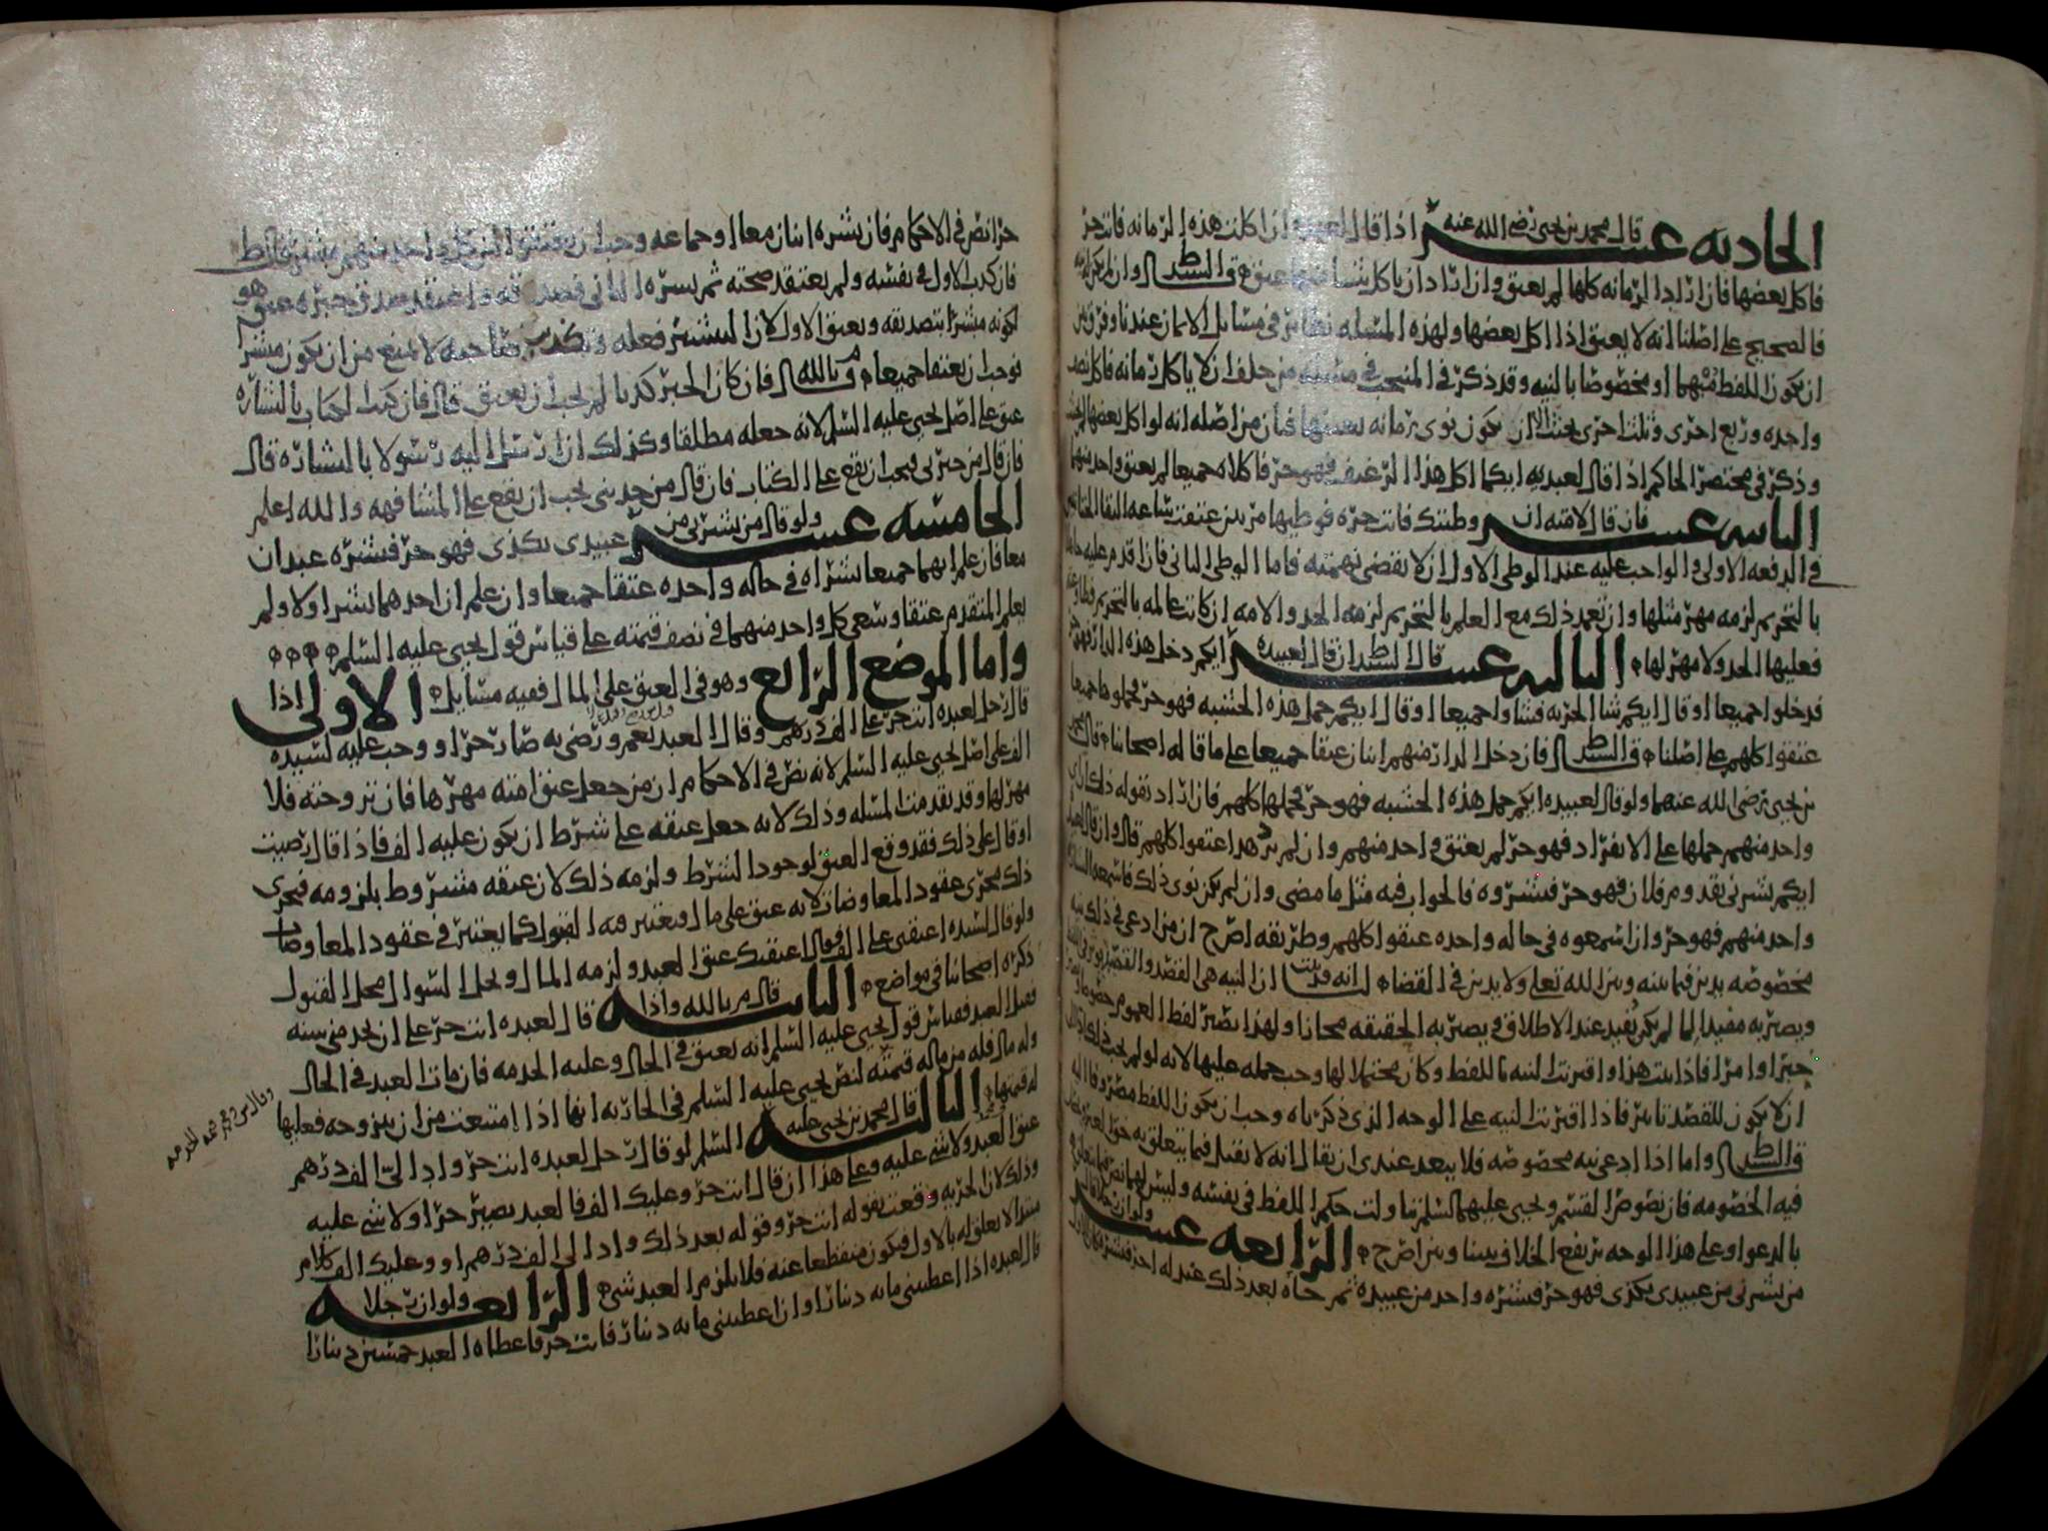 الحادية عشر قال محمد بن يحيى رضي الله عنه اذا قال لعبده ان اكلت هذه الرمانه فانت حر
فاكل بعضها فان اراد الرمانه كلها لم يعتق وان اراد ان ياكل شيا منها عتق قال السيد ط وان لم يكن له نيه
فالصحيح على اصلنا انه لا يعتق اذا اكل بعضها ولهذه المسئله نظائر في مسائل الايمان عندنا وفرق بين
ان يكون اللفظ مبهما او مخصوصا بالنيه وقد ذكر في المنتخب في مسئله من حلف ان لا ياكل رمانه فاكل نصف
واحده وربع اخرى وثلث اخرى يحنث الا ان يكون نوى رمانه بعينها فبان من اصله انه لو اكل بعضها لم يحنث
وذكر في مختصر الحاكم اذا قال لعبديه ايكما اكل هذا الرغيف فهو حر فاكلاه جميعا لم يعتق واحد منهما
الثانيه عشر فان قال لامته ان وطئتك فانت حره فوطيها مرتين عتقت ساعه التقا الختانين
في الدفعه الاولى والواجب عليه عند الوطي الاول ان لا يقضي نهمته فاما الوطي الثاني فان اقدم عليه جاهلا
بالتحريم لزمه مهر مثلها وان تعمد ذلك مع العلم بالتحريم لزمه الحد والامه ان كانت عالمه بالتحريم
فعليها الحد ولا مهر لها الثالثه عشر قال السيد ط ان قال لعبيده ايكم دخل هذه الدار فهو حر
فدخلوا جميعا او قال ايكم شا الحريه فشاوا جميعا او قال ايكم حمل هذه الخشبه فهو حر فحملوها جميعا
عتقوا كلهم على اصلنا قال السيد ط فان دخل الدار منهم اثنان عتقا جميعا على ما قاله اصحابنا قال محمد
بن يحيى رضى الله عنهما ولو قال لعبيده ايكم حمل هذه الخشبه فهو حر فحملها كلهم فان اراد بقوله ذلك ان اي
واحد منهم حملها على الانفراد فهو حر لم يعتق واحد منهم وان لم يرد هذا عتقوا كلهم قال وان قال لعبيده
ايكم بشرني بقدوم فلان فهو حر فبشروه فالجواب فيه مثل ما مضى وان لم يكن نوى ذلك فاسمعوه البشاره
واحد منهم فهو حر وان اسمعوه في حاله واحده عتقوا كلهم وطريقه اصرح ان من ادعى في ذلك نيه
مخصوصه يدين فيما بينه وبين الله تعلى ولا يدين في القضاء لنا انه قد ثبت ان النيه هي القصد والقصد
ويصير به مفيدا لما لم يكن يفيد عند الاطلاق ويصير به الحقيقه مجازا ولهذا يصير لفظ العموم خصوصا
خبرا وامرا فاذا ثبت هذا واقترنت النيه باللفظ وكان محتملا لها وجب حمله عليها لانه لو لم يجب ذلك
ان لا يكون للقصد تاثير فاذا اقترنت النيه على الوجه الذي ذكرناه وجب ان يكون اللفظ مصروفا اليه
قال السيد ط واما اذا ادعى نيه مخصوصه فلا يبعد عندي ان يقال انه لا يقبل فيما يتعلق به حق لغيره
فيه الخصومه فان نصوص القسم ويحيى عليهما السلم تناولت حكم اللفظ في نفسه وليس لهما نص فيما يتعلق
بالدعوا وعلى هذا الوجه يرتفع الخلاف بيننا وبين اصرح الرابعه عشر ولو ان رجلا قال
من بشرني من عبيدي بكذى فهو حر فبشره واحد من عبيده ثم جاه بعد ذلك عبد له اخر فبشره فان الاول
حر نص في الاحكام فان بشره اثنان معا او جماعه وجب ان يعتقوا لان كل واحد منهم مبشر قال ط
فان كذب الاول في نفسه ولم يعتقد صحته ثم بشره الثاني فصدقه واعتقد صدق خبره عتق هو
لكونه مبشرا بتصديقه ويعتق الاول لان التبشير فعله وتكذيب صاحبه لا يمنع من ان يكون مبشرا
فوجب ان يعتقا جميعا م بالله قال فان كان الخبر كذبا لم يجب ان يعتق قال فان كتب الكتاب بالبشاره
عتق على اصل يحيى عليه السلم لانه جعله مطلقا وكذلك ان ارسل اليه رسولا بالبشاره قال
فان قال من خبرني فيجب ان يقع على الكتاب فان قال من حدثني يجب ان يقع على المشافهه والله اعلم
الخامسه عشر ولو قال من بشرني من عبيدي بكذى فهو حر فبشره عبدان
معا فان علم انهما جميعا بشراه في حاله واحده عتقا جميعا وان علم ان احدهما بشر اولا ولم
يعلم المتقدم عتقا وسعى كل واحد منهما في نصف قيمته على قياس قول يحيى عليه السلم
واما الموضع الرابع وهو في العتق على المال ففيه مسايل الاولى اذا
قال رجل لعبده انت حر على الف درهم وقال العبد نعم ورضى به صار حرا ووجب عليه لسيده
الف على اصل يحيى عليه السلم لانه نص في الاحكام ان من جعل عتق امته مهرها فان تزوجته فلا
مهر لها وقد تقدمت المسئله وذلك لانه جعل عتقه على شرط ان يكون عليه الف فاذا قال رضيت
او قال على ذلك فقد وقع العتق لوجود الشرط ولزمه ذلك لان عتقه مشروط بلزومه فيجرى
ذلك مجرى عقود المعاوضات لانه عتق على مال فيعتبر فيه القبول كما يعتبر في عقود المعاوضات
ولو قال لسيده اعتقني على الف فقال اعتقتك عتق العبد ولزمه المال ويحل السوال محل القبول
ذكره اصحابنا في مواضع الثانيه قال م بالله واذا قال لعبده انت حر على ان تخدمني سنه
فقبل العبد فقياس قول يحيى عليه السلم انه يعتق في الحال وعليه الخدمه فان مات العبد في الحال
وله مال فله من ماله قيمته لنص يحيى عليه السلم في الجاريه انها اذا امتنعت من ان يتزوجه فعليها
له قيمتها الثالثه قال محمد بن يحيى عليه السلم لو قال رجل لعبده انت حر وادِ اليّ الف درهم
عتق العبد ولا شي عليه وعلى هذا ان قال انت حر وعليك الف فالعبد يصير حرا ولا شي عليه
وذلك لان الحريه وقعت بقوله انت حر وقوله بعد ذلك واد الى الف درهم او وعليك الف كلام
مبتدا لا تعلق له بالاول فيكون منقطعا عنه فلا يلزم العبد شي الرابعه ولو ان رجلا
قال لعبده اذا اعطيتني مايه دينار او ان اعطيتني مايه دينار فانت حر فاعطاه العبد خمسين دينارا